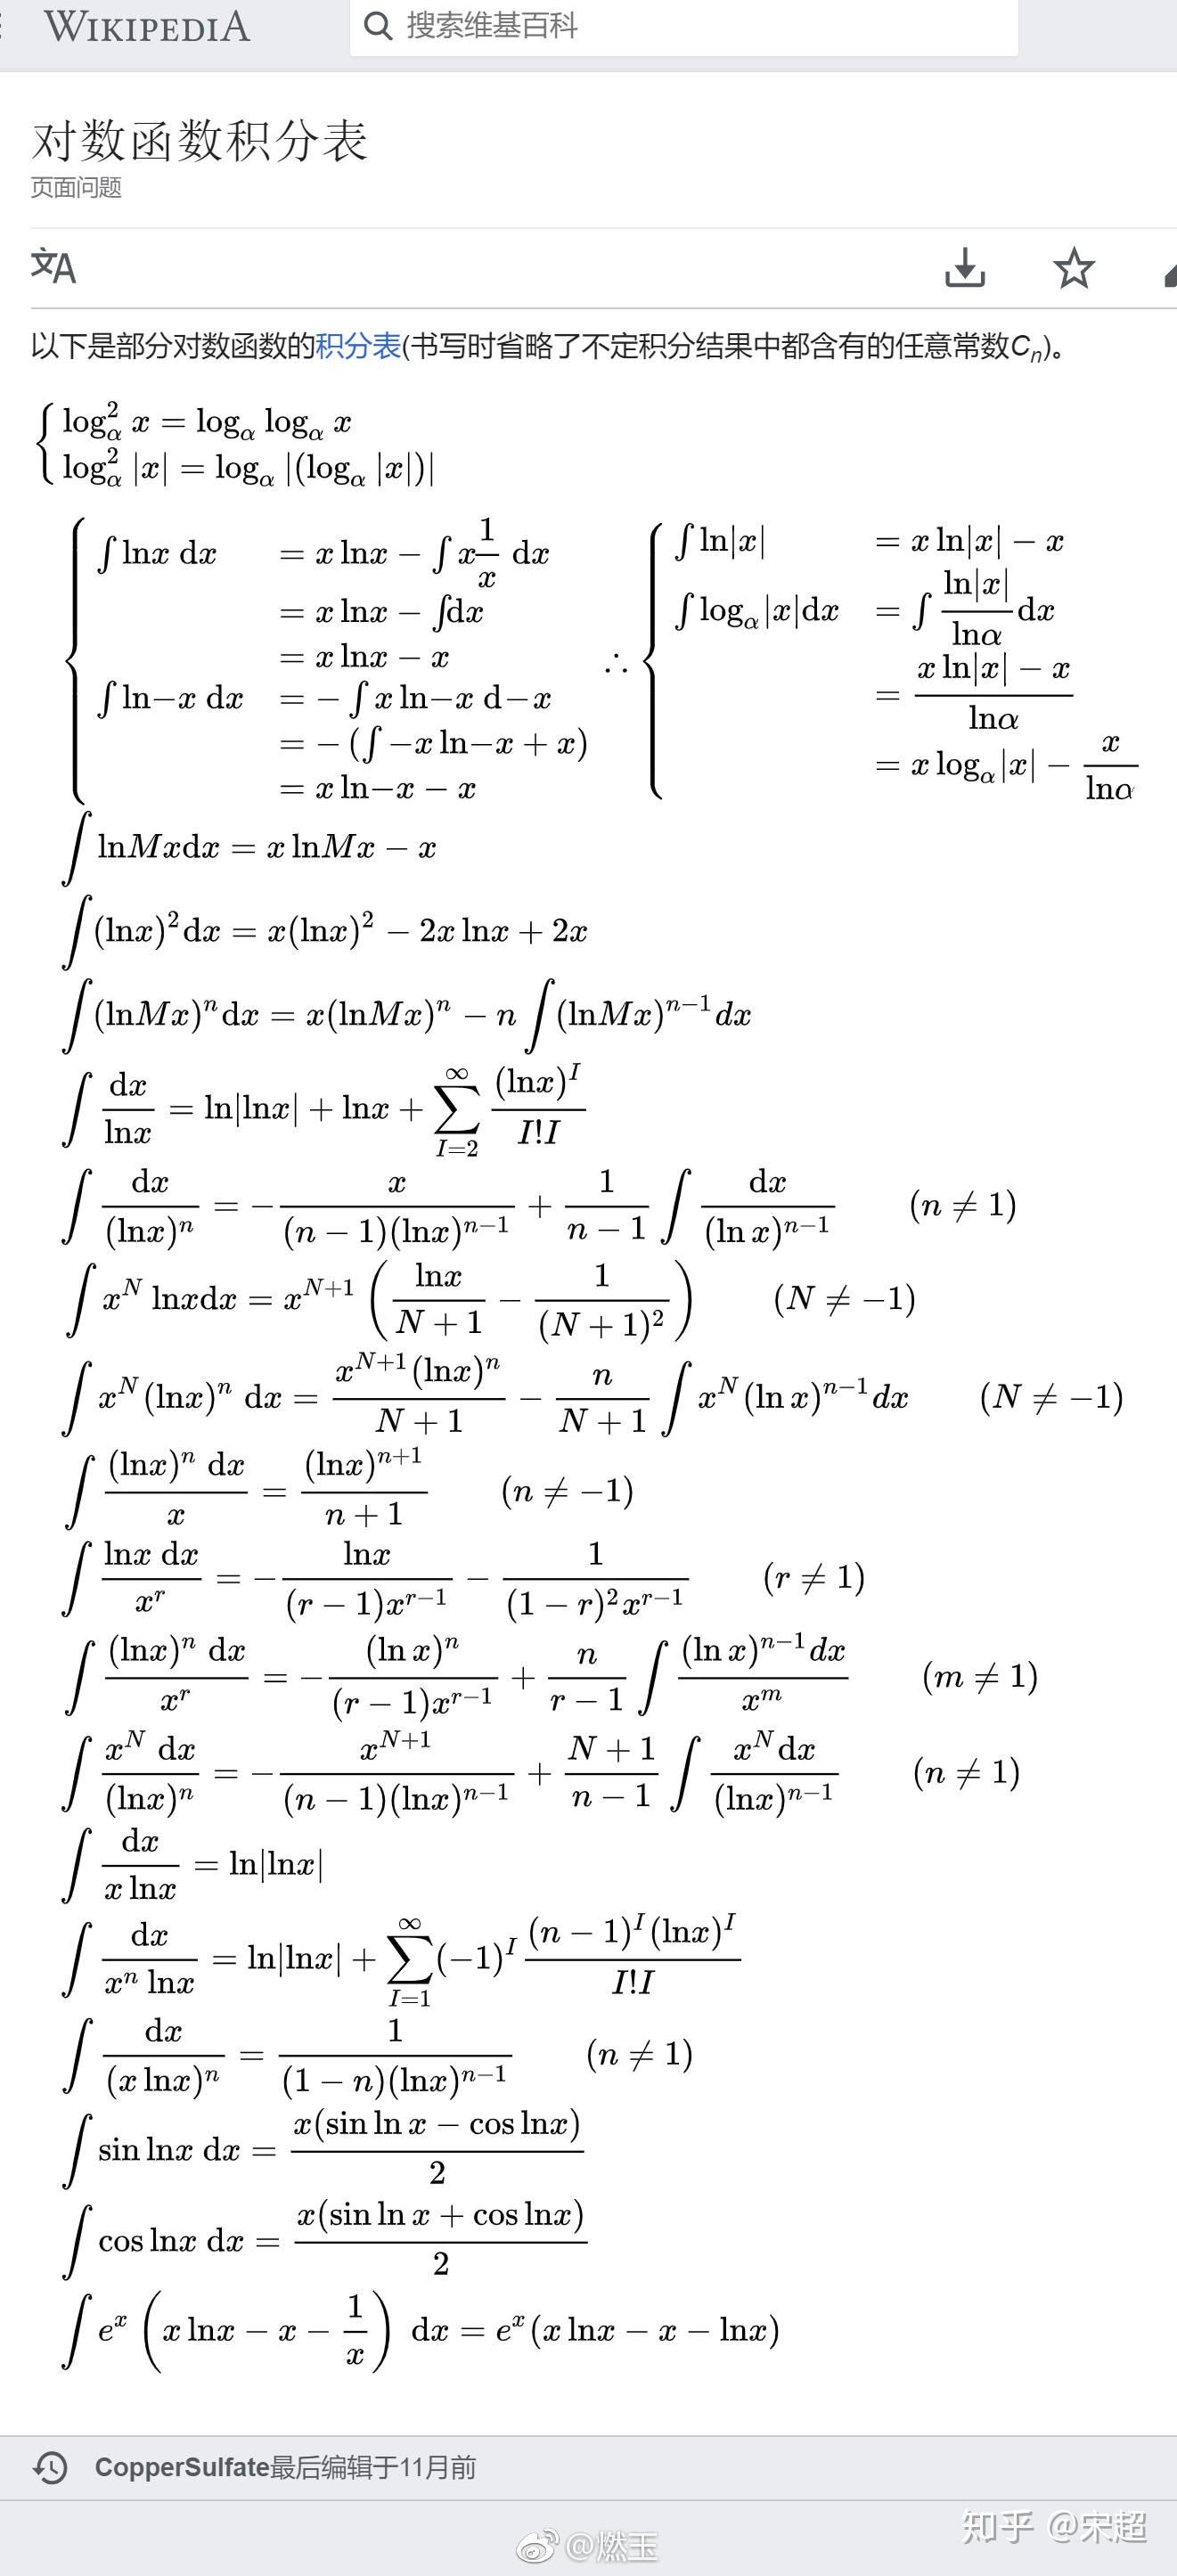 WIKIPEDIA
搜索维基百科
对数函数积分表
页面问题
文A
以下是部分对数函数的积分表(书写时省略了不定积分结果中都含有的任意常数Cₙ)。
{ log_α^2 x = log_α log_α x
log_α^2 |x| = log_α |(log_α |x|)|
{ ∫ lnx dx = x lnx − ∫ x 1/x dx
= x lnx − ∫dx
= x lnx − x
∫ ln−x dx = − ∫ x ln−x d−x
= − (∫ −x ln−x + x)
= x ln−x − x
∴ { ∫ ln|x| = x ln|x| − x
∫ log_α|x|dx = ∫ ln|x|/lnα dx
= (x ln|x| − x)/lnα
= x log_α|x| − x/lnα
∫ lnMxdx = x lnMx − x
∫ (lnx)^2 dx = x(lnx)^2 − 2x lnx + 2x
∫ (lnMx)^n dx = x(lnMx)^n − n ∫ (lnMx)^{n−1} dx
∫ dx/lnx = ln|lnx| + lnx + ∑_{I=2}^{∞} (lnx)^I/(I!I)
∫ dx/(lnx)^n = − x/((n − 1)(lnx)^{n−1}) + 1/(n − 1) ∫ dx/(ln x)^{n−1} (n ≠ 1)
∫ x^N lnxdx = x^{N+1} (lnx/(N + 1) − 1/(N + 1)^2) (N ≠ −1)
∫ x^N (lnx)^n dx = x^{N+1}(lnx)^n/(N + 1) − n/(N + 1) ∫ x^N (ln x)^{n−1} dx (N ≠ −1)
∫ (lnx)^n dx/x = (lnx)^{n+1}/(n + 1) (n ≠ −1)
∫ lnx dx/x^r = − lnx/((r − 1)x^{r−1}) − 1/((1 − r)^2 x^{r−1}) (r ≠ 1)
∫ (lnx)^n dx/x^r = − (ln x)^n/((r − 1)x^{r−1}) + n/(r − 1) ∫ (ln x)^{n−1} dx/x^m (m ≠ 1)
∫ x^N dx/(lnx)^n = − x^{N+1}/((n − 1)(lnx)^{n−1}) + (N + 1)/(n − 1) ∫ x^N dx/(lnx)^{n−1} (n ≠ 1)
∫ dx/(x lnx) = ln|lnx|
∫ dx/(x^n lnx) = ln|lnx| + ∑_{I=1}^{∞} (−1)^I (n − 1)^I (lnx)^I/(I!I)
∫ dx/(x lnx)^n = 1/((1 − n)(lnx)^{n−1}) (n ≠ 1)
∫ sin lnx dx = x(sin ln x − cos lnx)/2
∫ cos lnx dx = x(sin ln x + cos lnx)/2
∫ e^x (x lnx − x − 1/x) dx = e^x (x lnx − x − lnx)
CopperSulfate最后编辑于11月前
知乎 @宋超
@燃玉